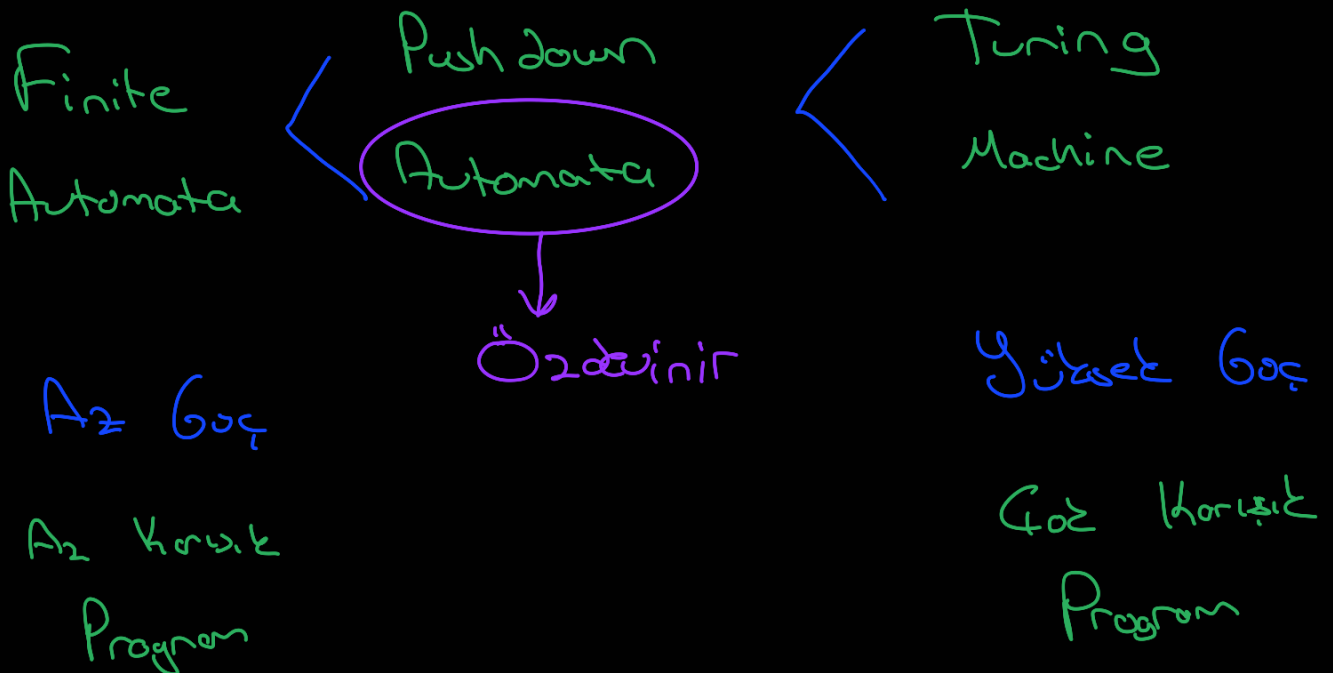 Finite
Automata
<
Pushdown
Automata
<
Turing
Machine
Özdevinir
Az Güç
Az Karışık
Program
Yüksek Güç
Çok Karışık
Program